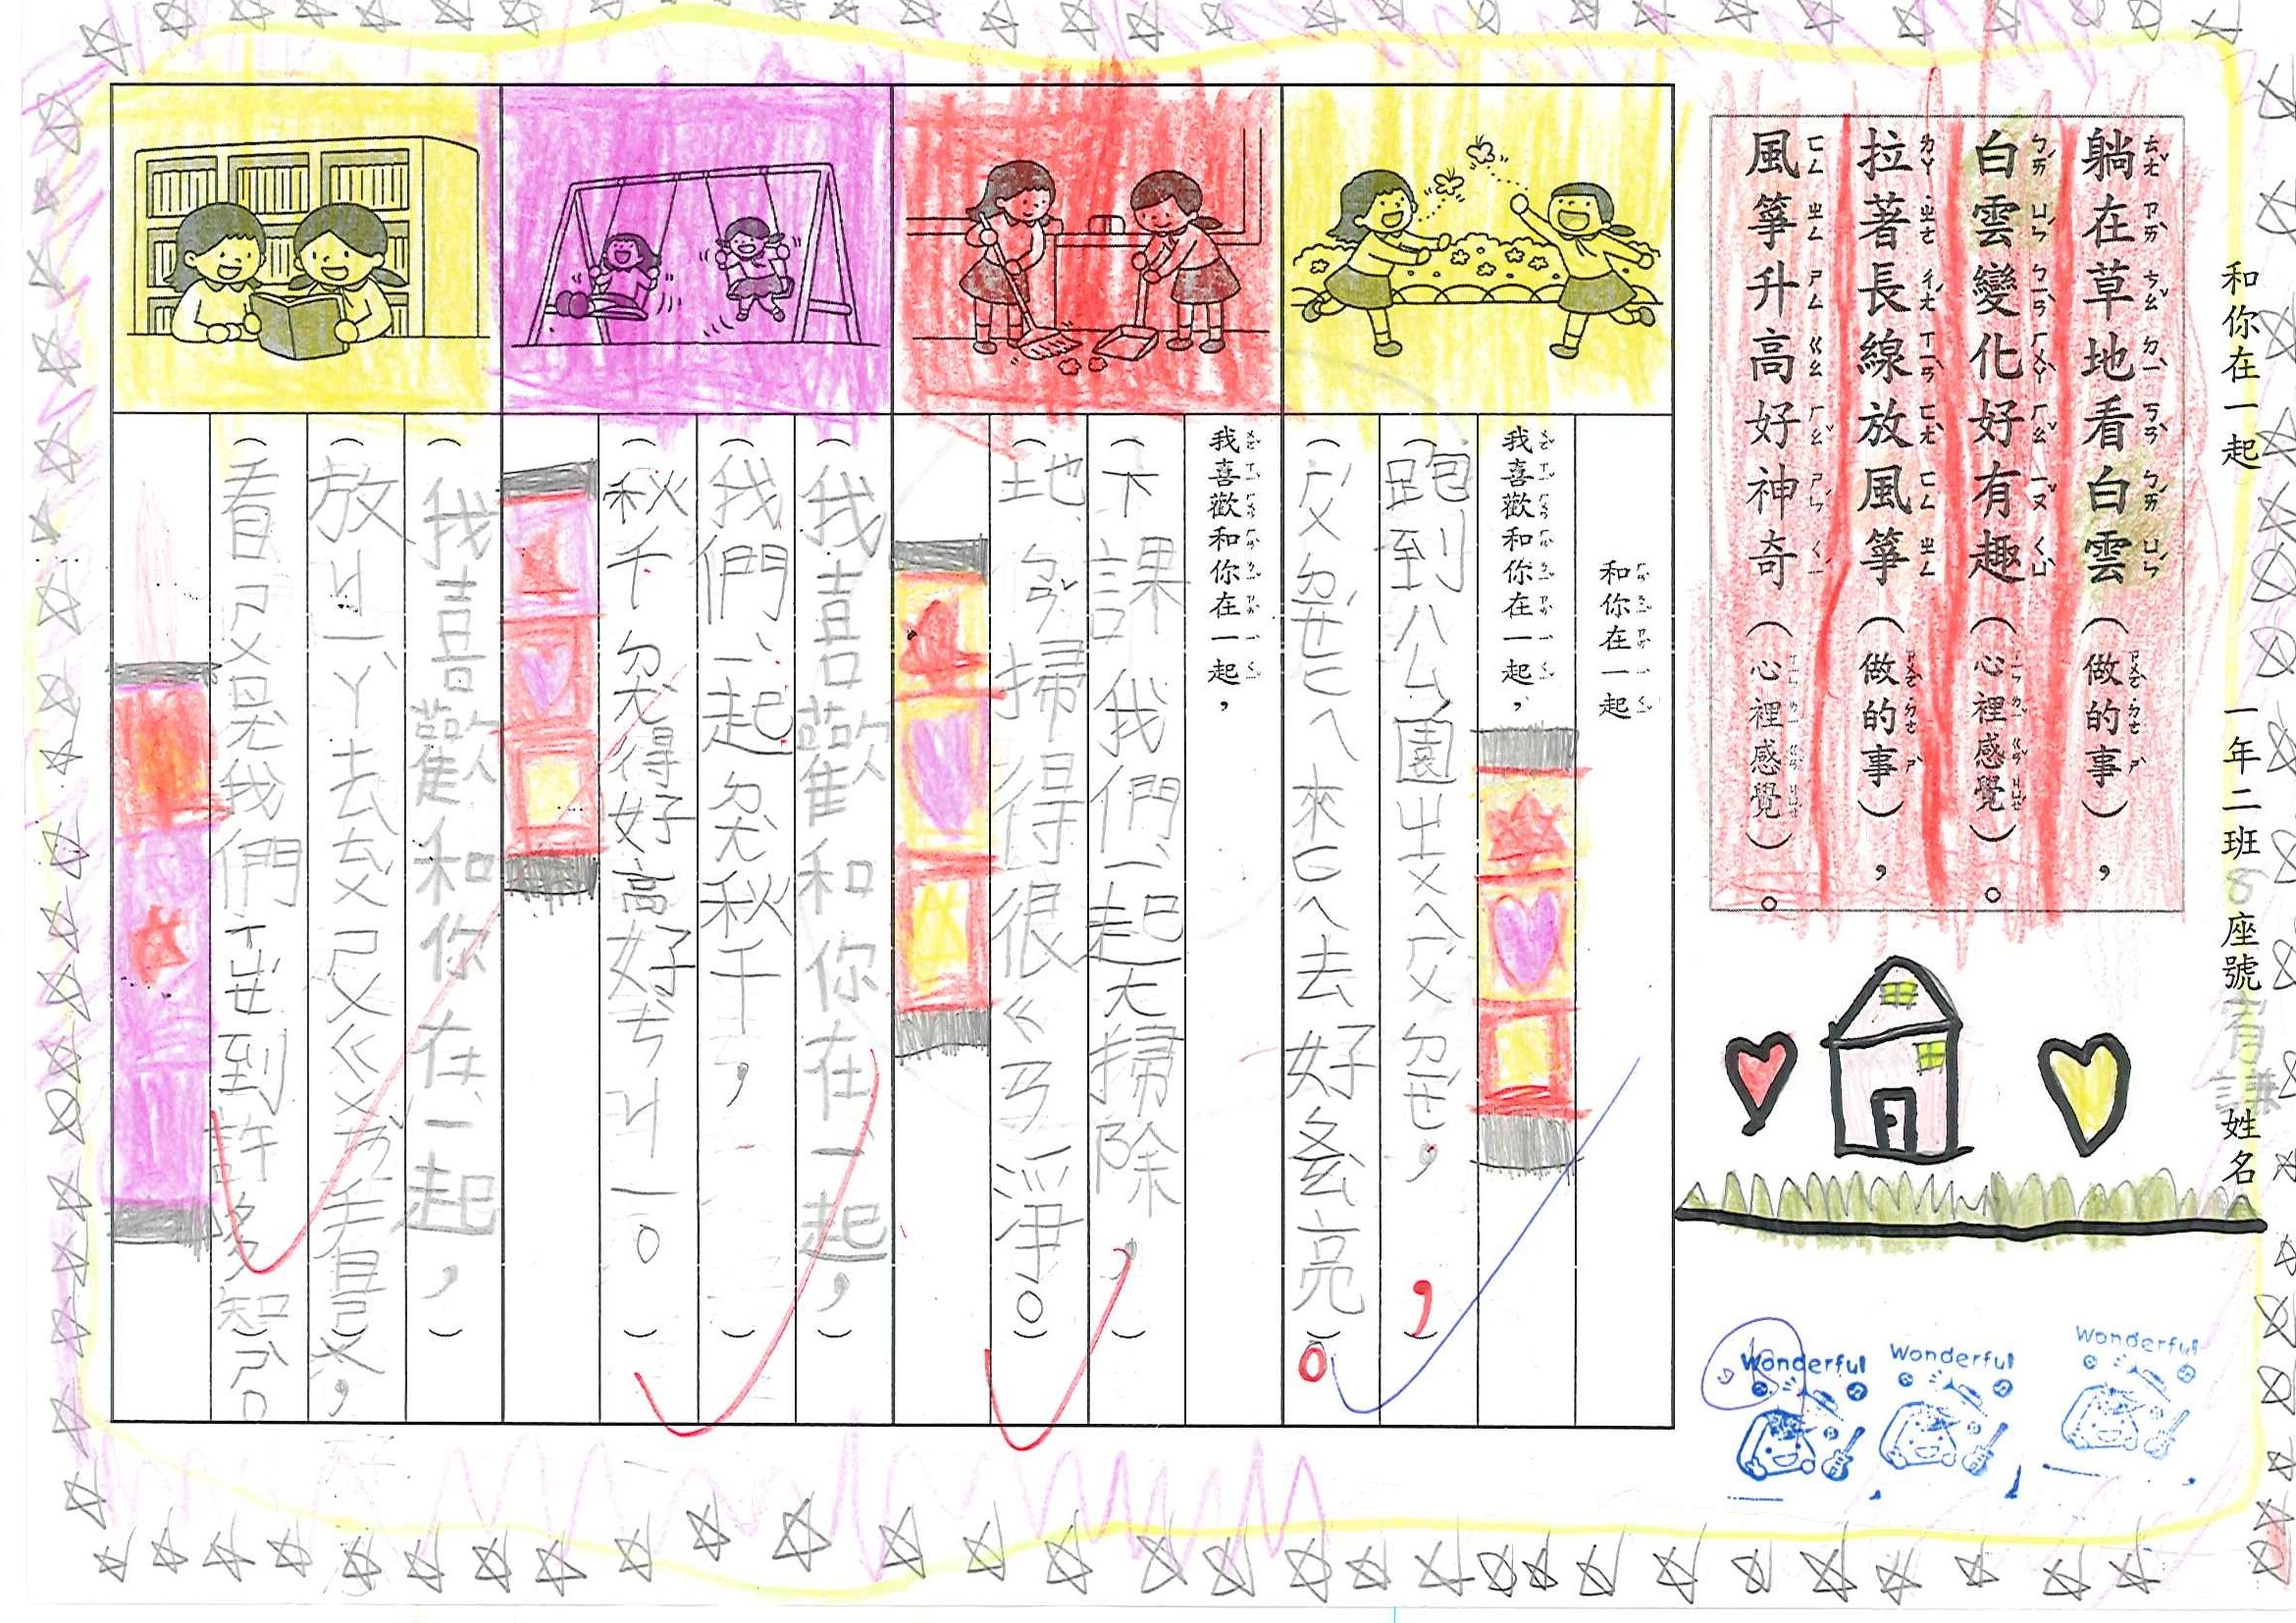 和你在一起 一年二班8座號宥謙姓名
躺在草地看白雲(做的事),
白雲變化好有趣(心裡感覺)。
拉著長線放風箏(做的事),
風箏升高好神奇(心裡感覺)。
和你在一起
我喜歡和你在一起,
(跑到ㄍㄨㄥ園ㄓㄨㄟㄏㄨˊㄉㄧㄝˊ,)
來
去好
亮)。
我喜歡和你在一起,
(下課我們一起大掃除,)
(地ㄅㄢˇ掃得很ㄍㄢ淨。)
(我喜歡和你在一起,)
(我們一起ㄉㄤˋ秋千,)
秋千ㄉㄤˋ得好高好ㄘˋㄐㄧ。)
(我喜歡和你在一起,)
(放ㄐㄧㄚˋ去ㄊㄨˊㄕㄨㄍㄨㄢˇ看書,)
(看ㄕㄨ是我們ㄒㄩㄝˊ到許多知ㄕˋ。)
Wonderful
Wonderful
Wonderful